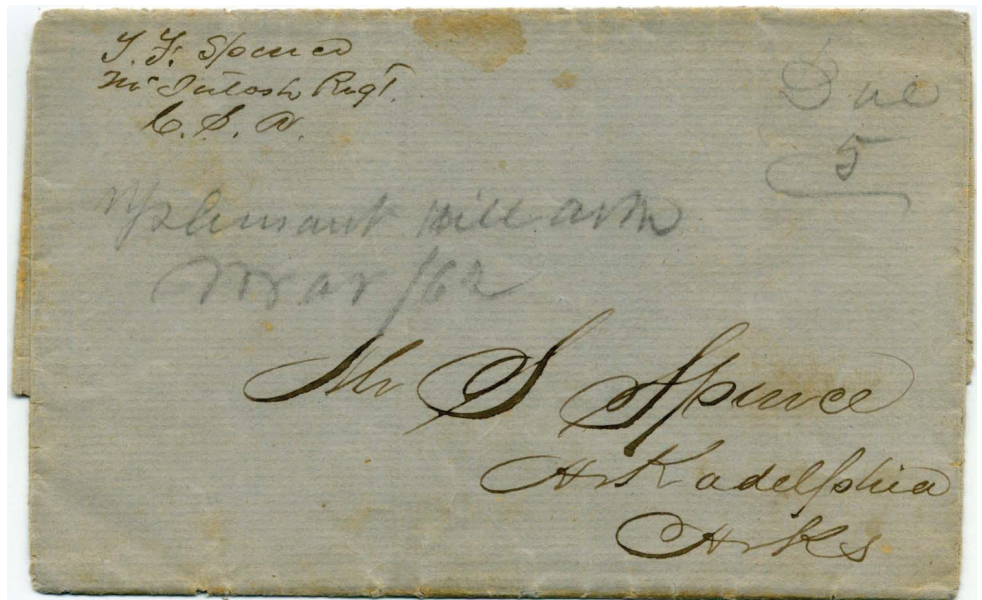 T. F. Spence
McIntosh Regt.
C. S. A.
Due
5
Pleasant Hill Ark
Mar /62
Mr S Spence
Arkadelphia
Arks